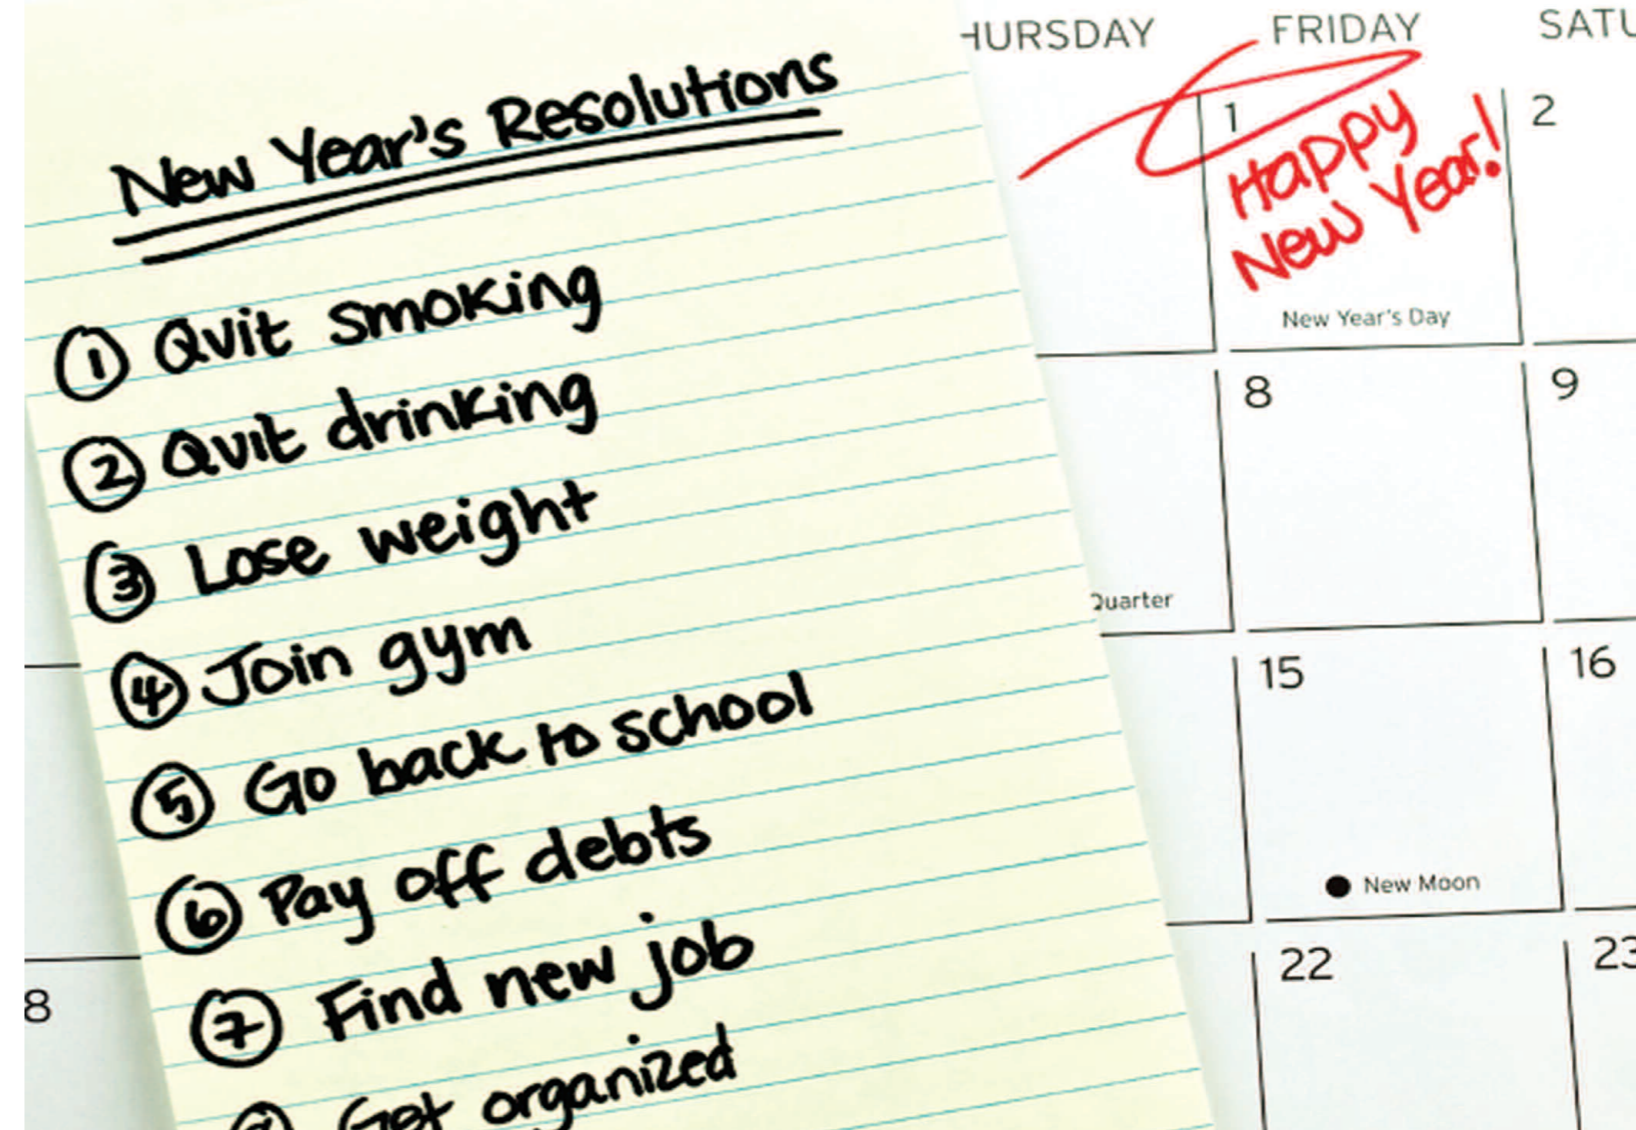 New Year's Resolutions
1 Quit smoking
2 Quit drinking
3 Lose weight
4 Join gym
5 Go back to school
6 Pay off debts
7 Find new job
Get organized
HURSDAY FRIDAY SATU
1 2
Happy
New Year!
New Year's Day
8 9
Quarter
15 16
New Moon
22 23
8